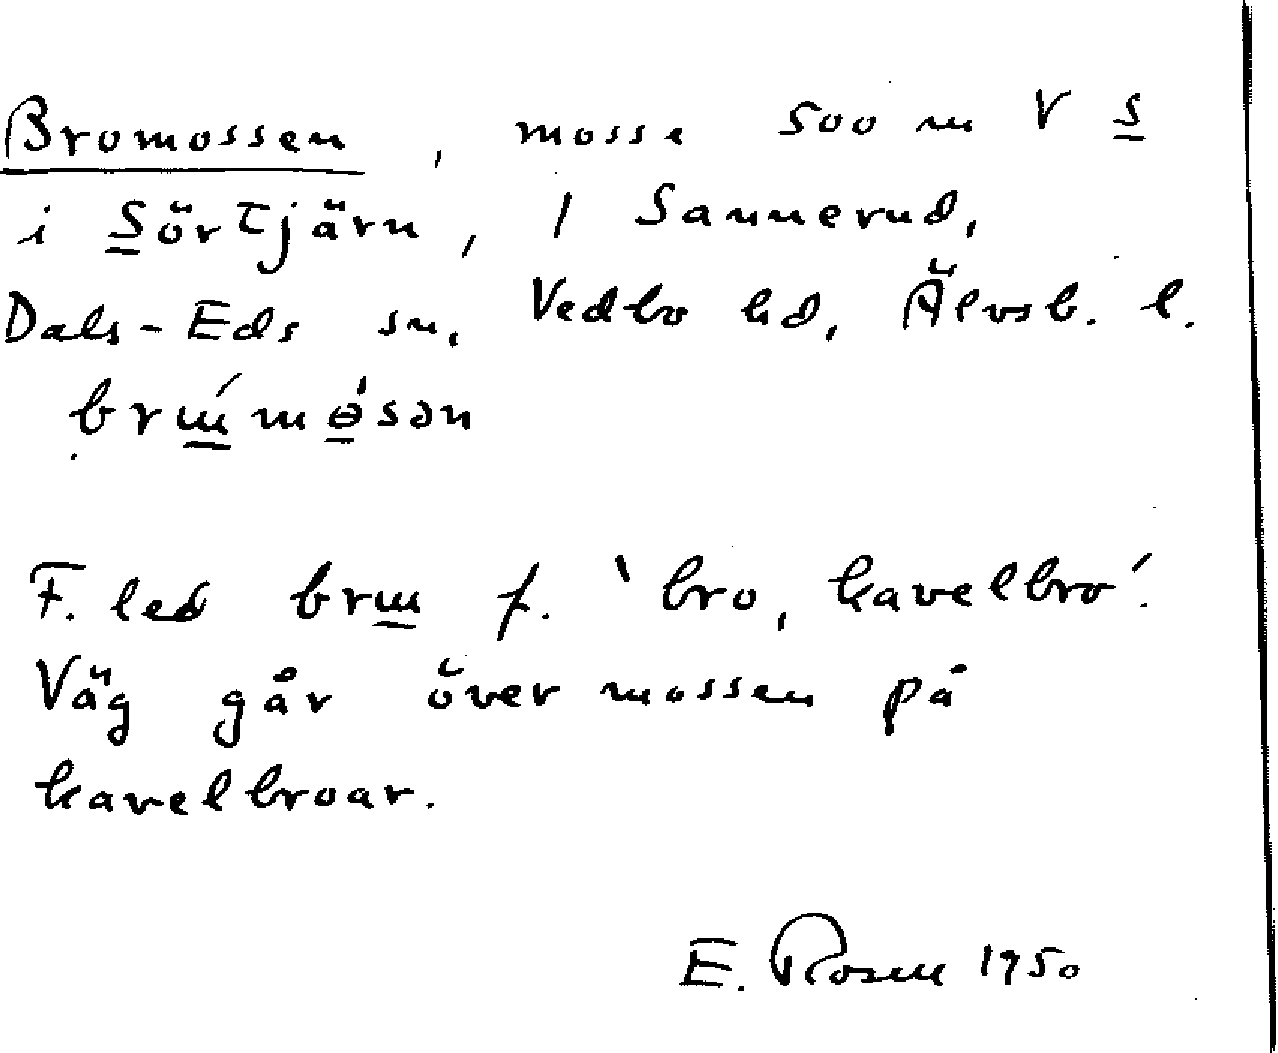 Bromossen, mosse 500 m V S
i Sörtjärn, / Sannerud,
Dals-Eds sn, Vedbo hd, Älvsb. l.
brɯ́mɵ̀sən
F. led brɯ f. 'bro, kavelbro'.
Väg går över mossen på
kavelbroar.
E. Rosen 1950